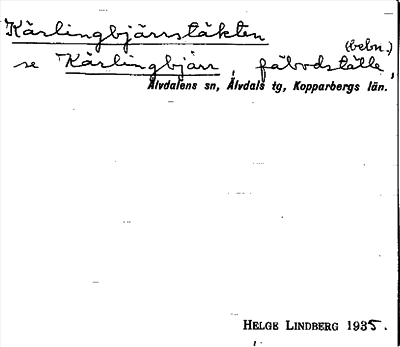 Kärlingbjärrstäkten
(bebn.)
se Kärlingbjärr, fäbodställe,
Älvdalens sn, Älvdals tg, Kopparbergs län.
HELGE LINDBERG 1935.